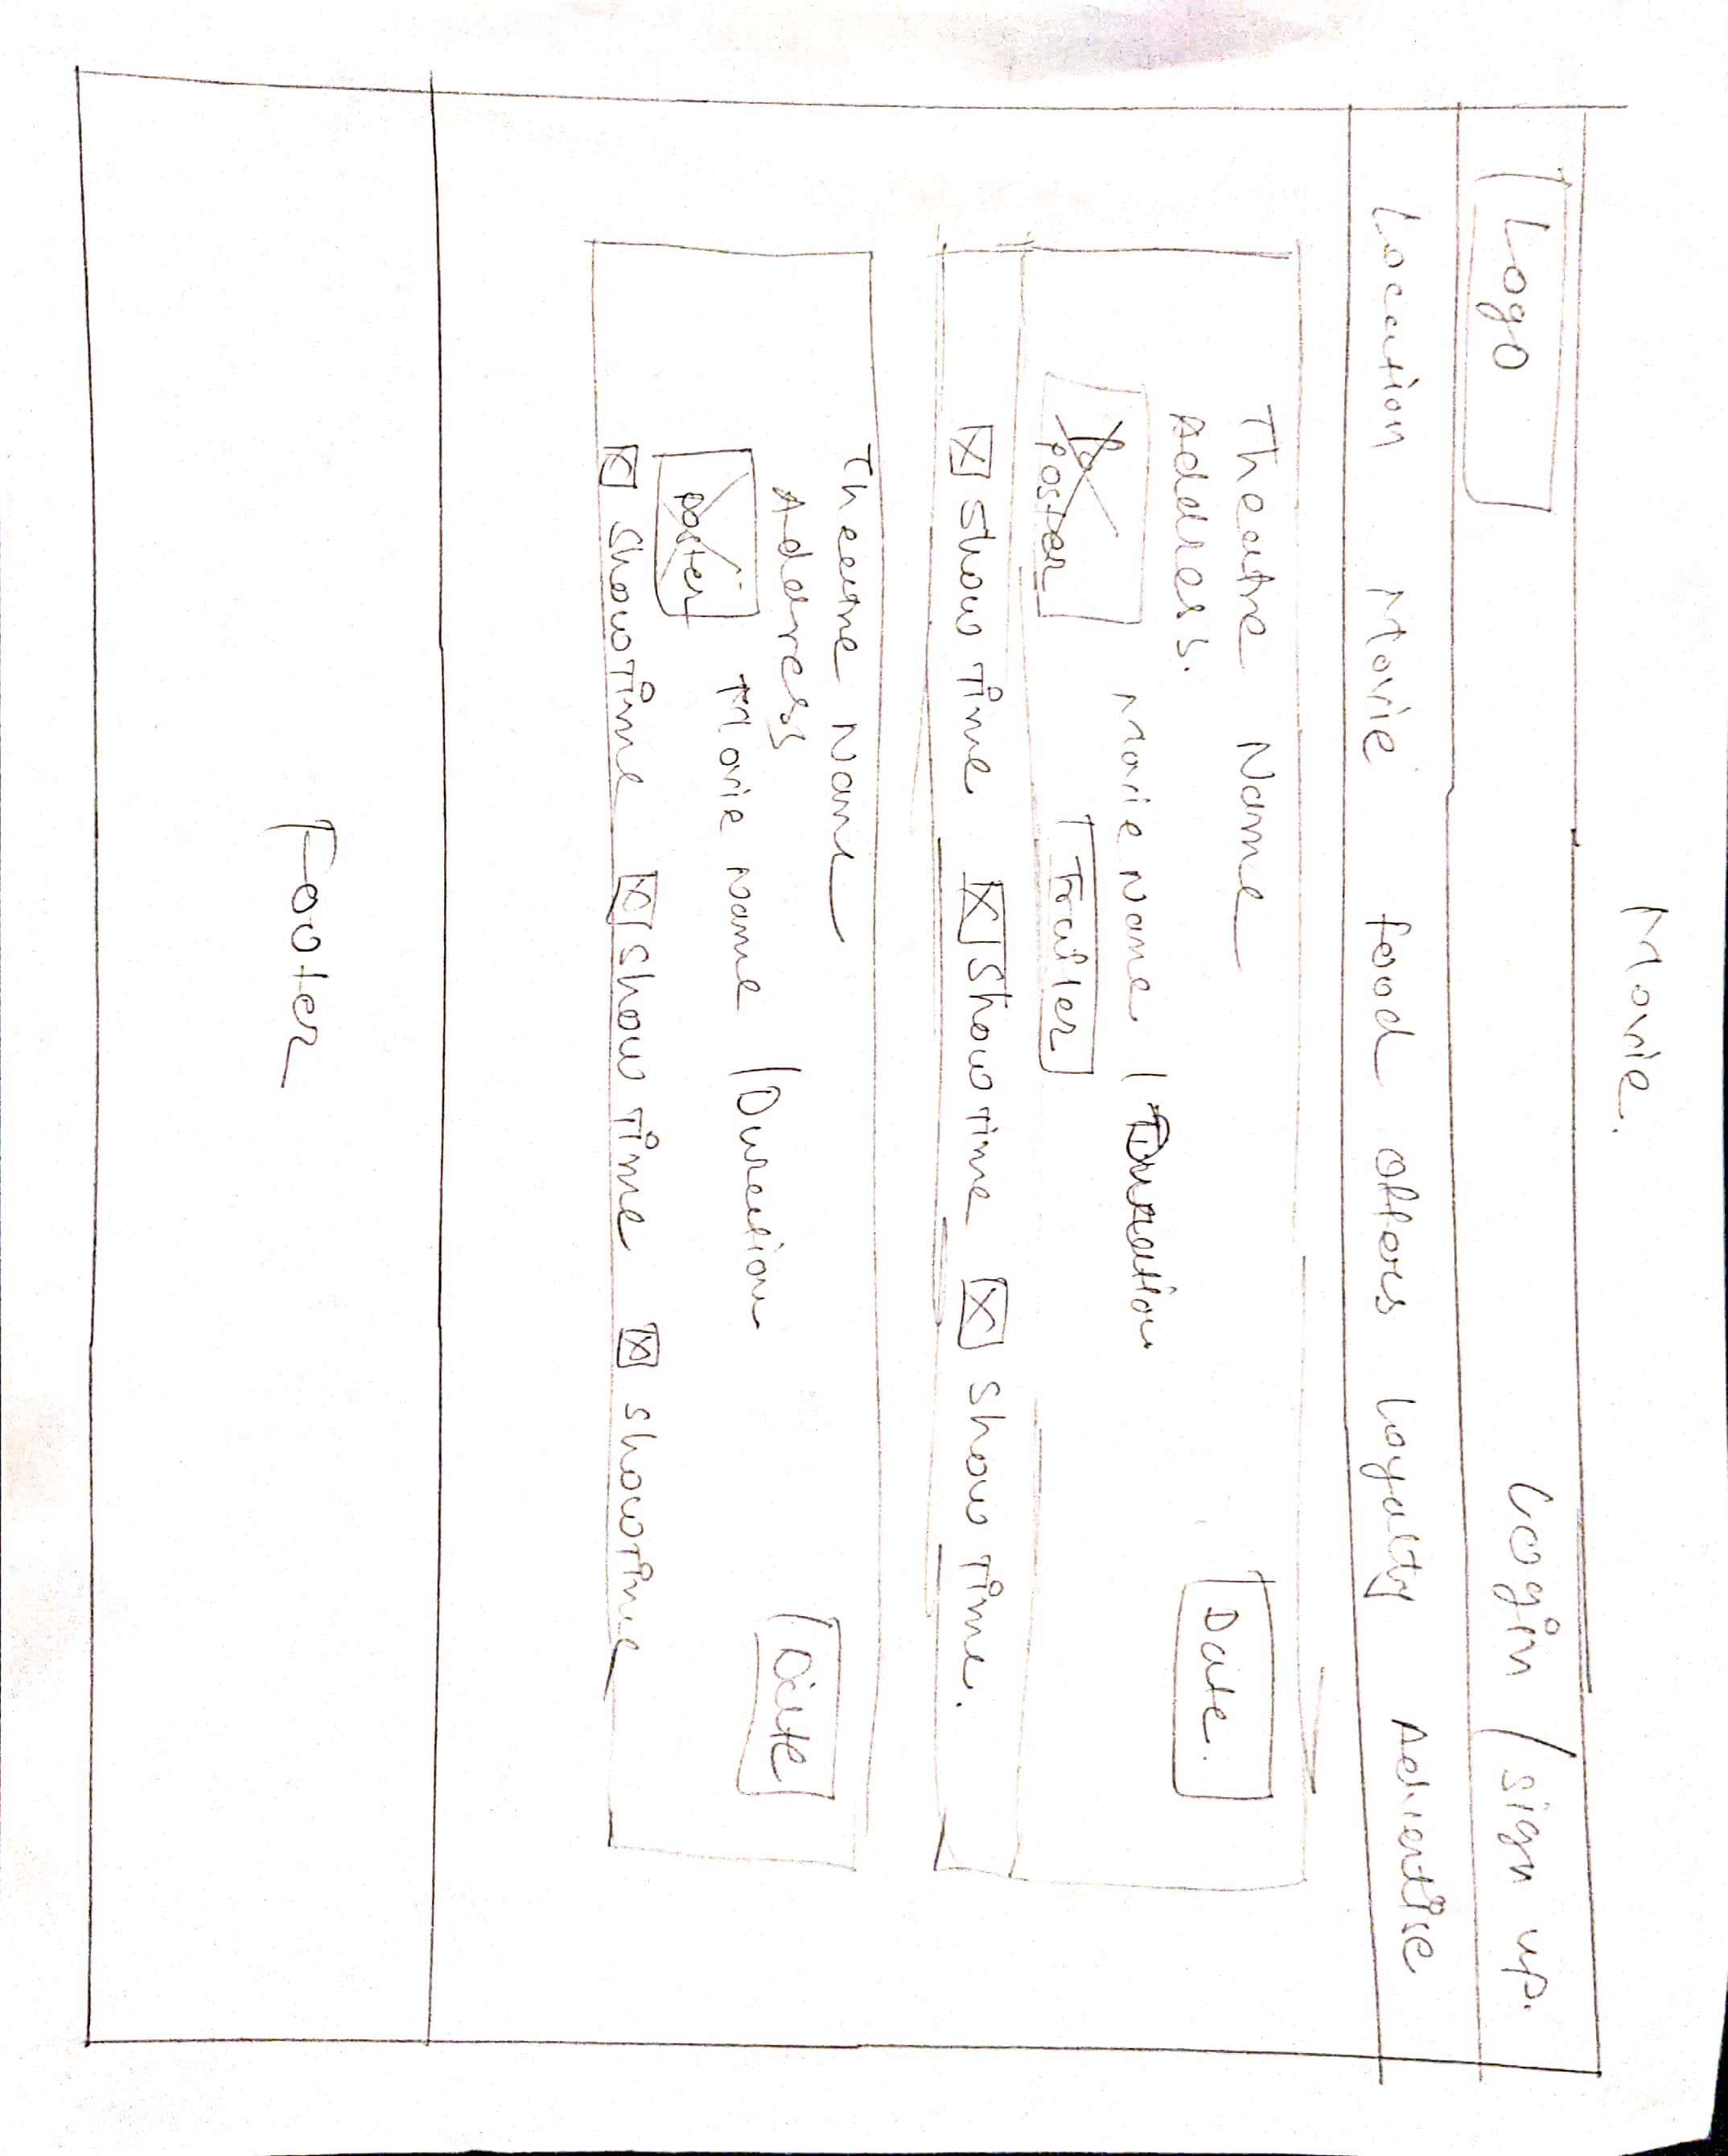 Movie.
Logo Login / Sign up.
Location Movie food offers Loyalty Advertise
Theatre Name
Address.
Date.
Movie Name | Duration
poster
Trailer
Show Time Show Time Show Time.
Theatre Name
Address
Date
Movie Name | Duration
poster
Show Time Show Time Show Time
Footer